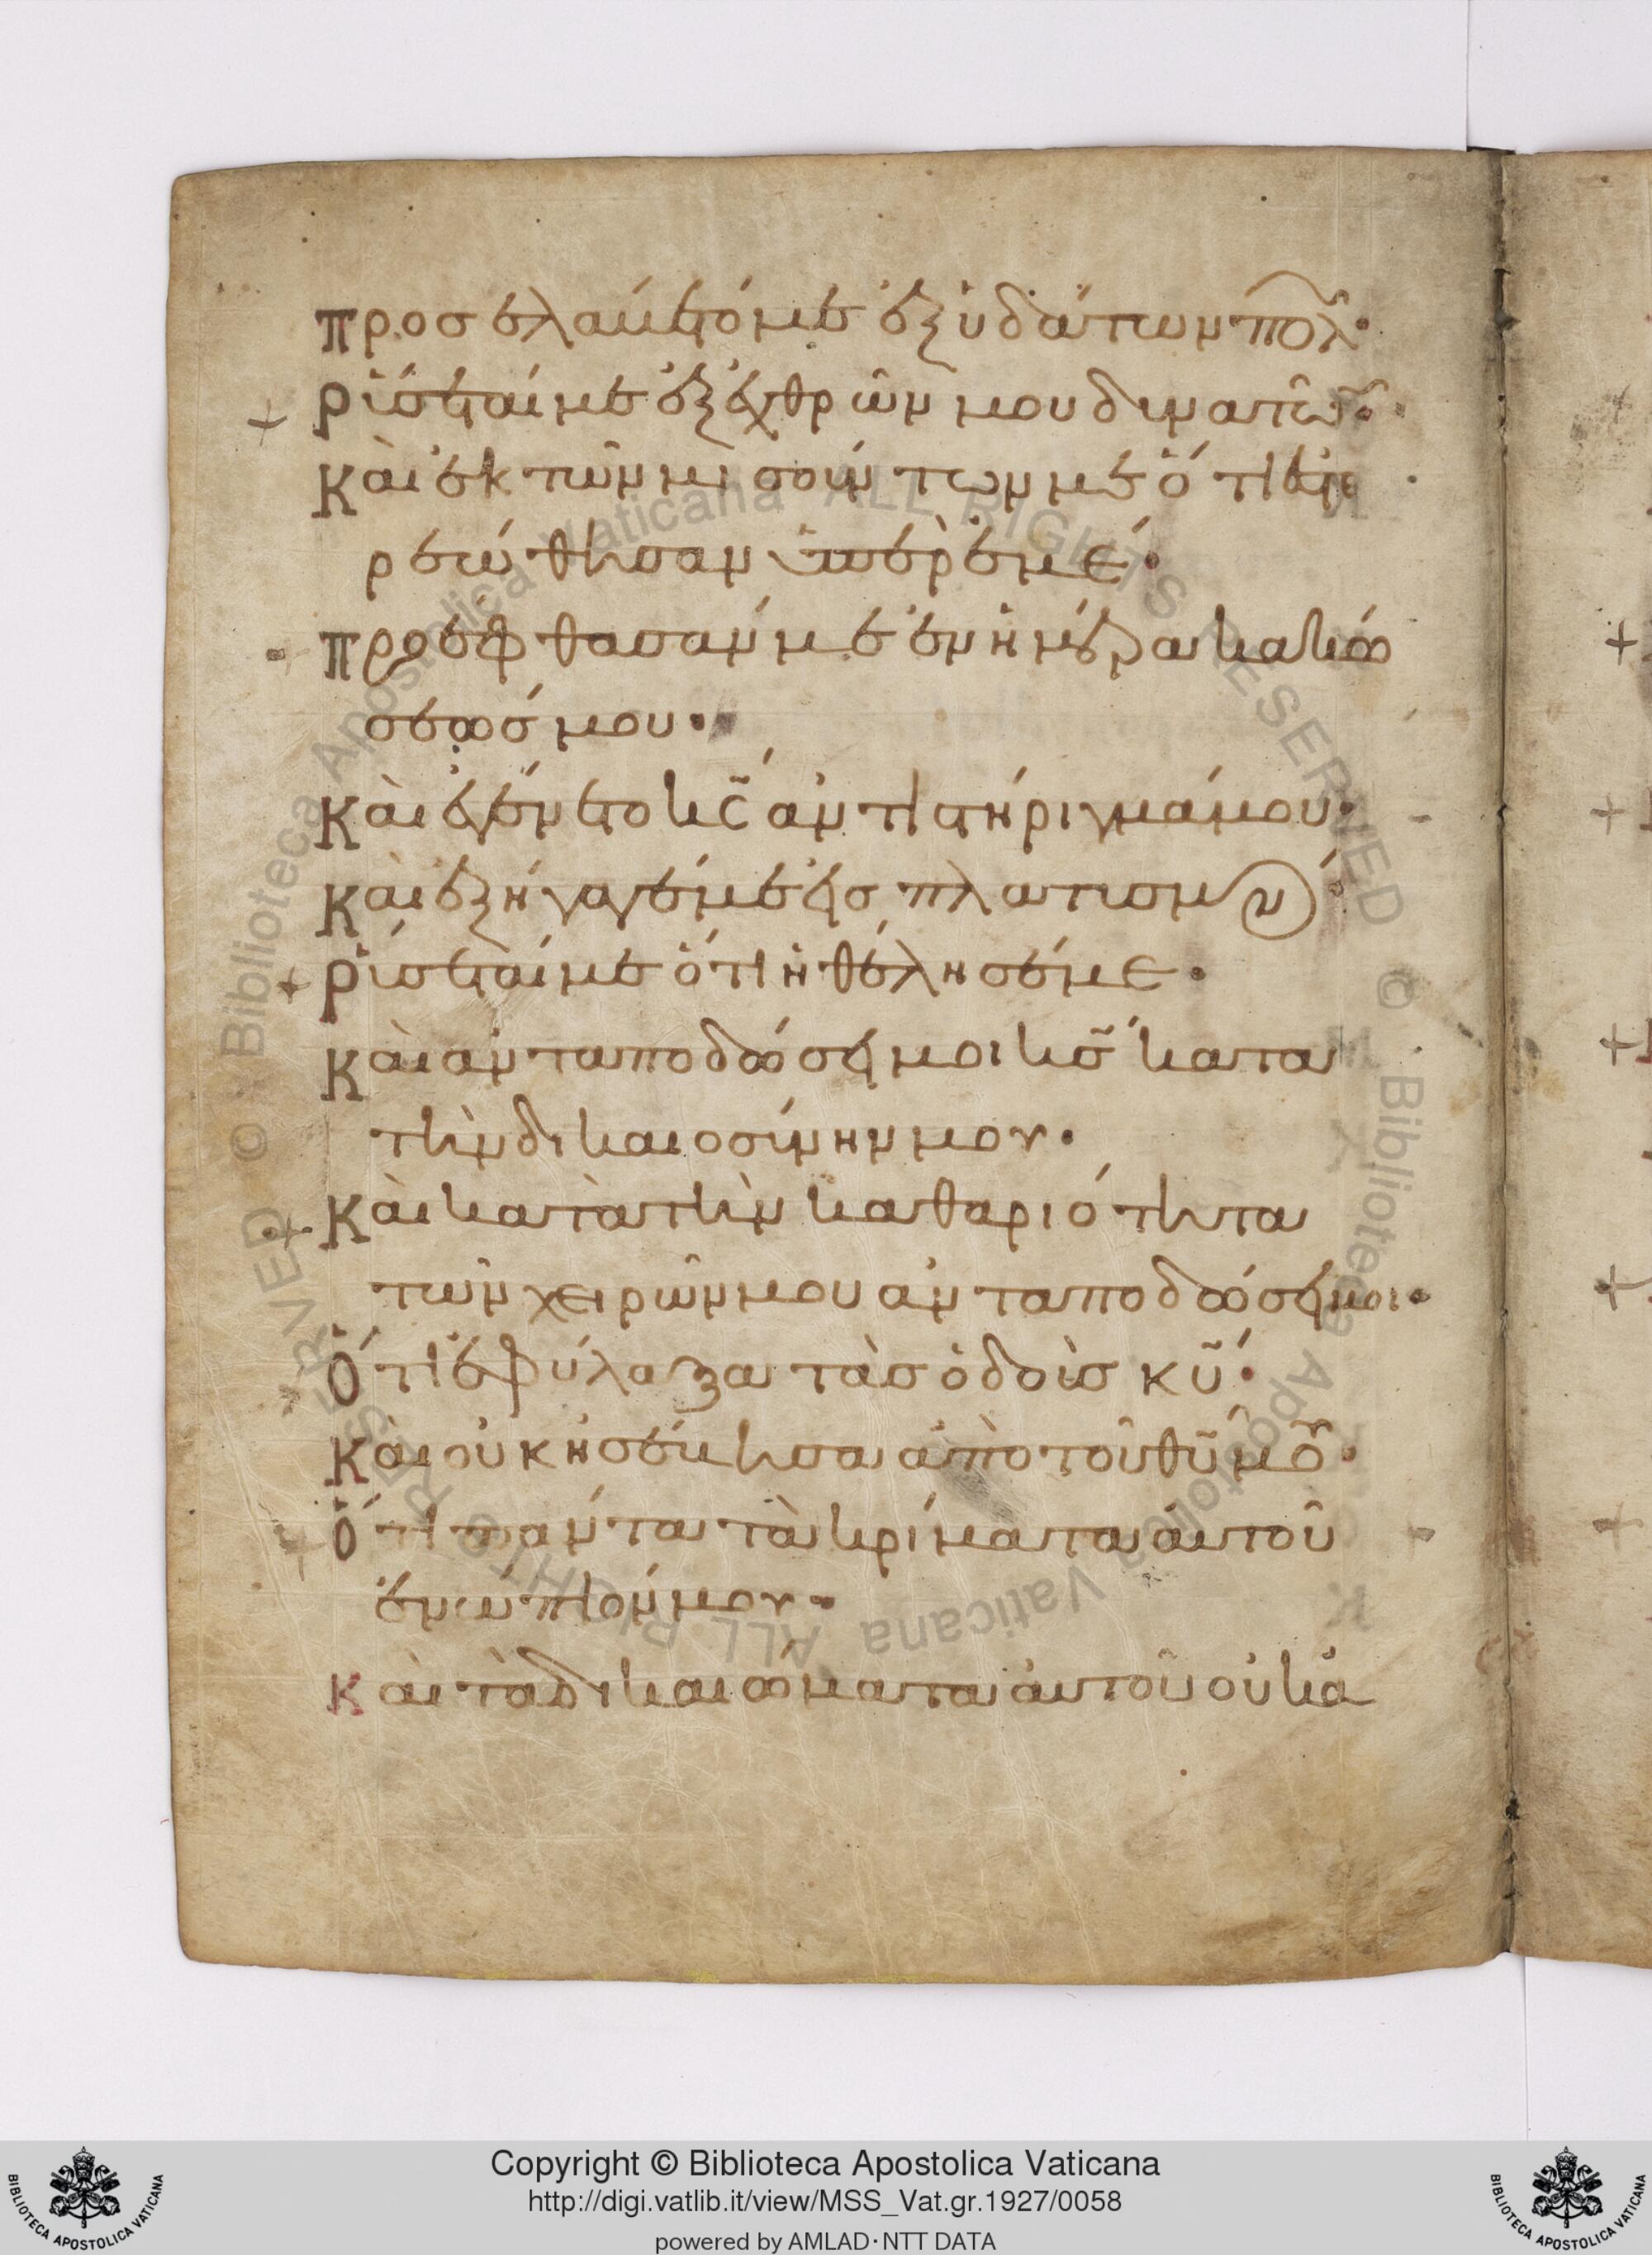 προσελάβετό με ἐξ ὑδάτων πολλ·
ρύσεταί με ἐξ ἐχθρῶν μου δυνατῶν·
Καὶ ἐκ τῶν μισούντων με ὅτι ἐστε
ρεώθησαν ὑπὲρ ἐμέ·
προέφθασάν με ἐν ἡμέρα κακώ
σεώσ μου·
Καὶ ἐγένετο κ̅ς̅ ἀντιστήριγμά μου·
Καὶ ἐξήγαγέ με εἰσ πλατυσμόν·
Ρύσεταί με ὅτι ἠθέλησέ με·
Καὶ ἀνταποδώσει μοι κ̅σ̅ κατα
τὴν δικαιοσύνην μου·
Καὶ κατὰ τὴν καθαριότητα
τῶν χειρῶν μου ἀνταποδώσει μοι·
Ὅτι ἐφύλαξα τὰσ ὁδοὺσ κ̅υ̅·
Καὶ οὐκ ἠσέβησα ἀπὸ τοῦ θ̅υ̅ μου·
Ὅτι πάντα τὰ κρίματα αὐτοῦ
ἐνώπιόν μου·
Καὶ τὰ δικαιώματα αὐτοῦ οὐκ ἀ
Copyright © Biblioteca Apostolica Vaticana
http://digi.vatlib.it/view/MSS_Vat.gr.1927/0058
powered by AMLAD·NTT DATA